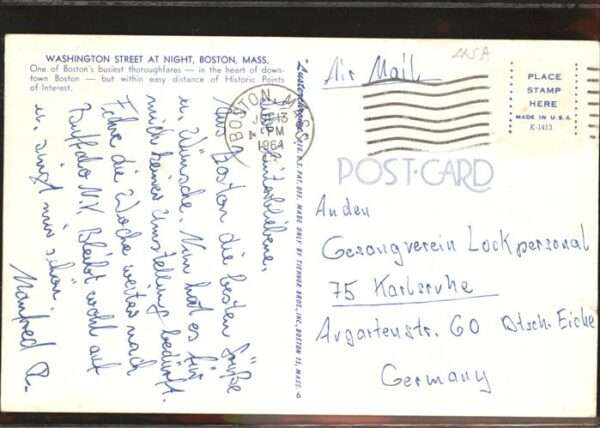 WASHINGTON STREET AT NIGHT, BOSTON, MASS.
One of Boston's busiest thoroughfares — in the heart of down-
town Boston — but within easy distance of Historic Points
of Interest.
USA
Air Mail
BOSTON, MASS.
13
PM
1964
PLACE
STAMP
HERE
MADE IN U.S.A.
K-1413
POST-CARD
"Lusterchrome" REG. U.S. PAT. OFF. MADE ONLY BY TICHNOR BROS., INC., BOSTON 15, MASS.
Hinterbliebene,
Aus Boston die besten Grüße
u. Wünsche. Nun hat es für
mich keiner Umstellung bedürft.
Fahre die Woche weiter nach
Buffalo N.Y. Bleibt wohl auf
u. singt mir schön.
Manfred
An den
Gesangverein Lockpersonal
75 Karlsruhe
Argartenstr. 60 Dtsch. Eiche
Germany